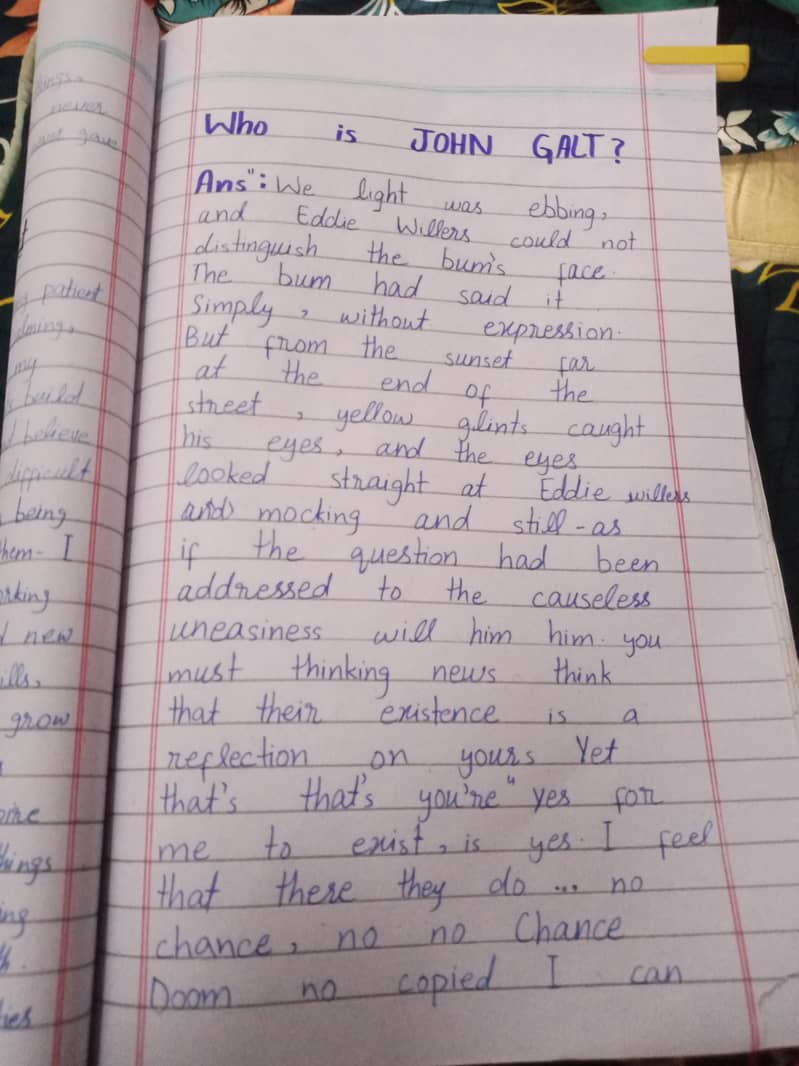 Who is JOHN GALT?
Ans": We light was ebbing,
and Eddie Willers could not
distinguish the bum's face.
The bum had said it
Simply, without expression.
But from the sunset far
at the end of the
street, yellow glints caught
his eyes, and the eyes
looked straight at Eddie willers
and mocking and still-as
if the question had been
addressed to the causeless
uneasiness will him him. you
must thinking news think
that their existence is a
reflection on yours Yet
that's that's you're" yes for
me to exist, is yes. I feel
that there they do ... no
chance, no no Chance
Doom no copied I can
never
gave
patient
my
build
believe
difficult
being
hem- I
new
ills,
grow
hings
ing